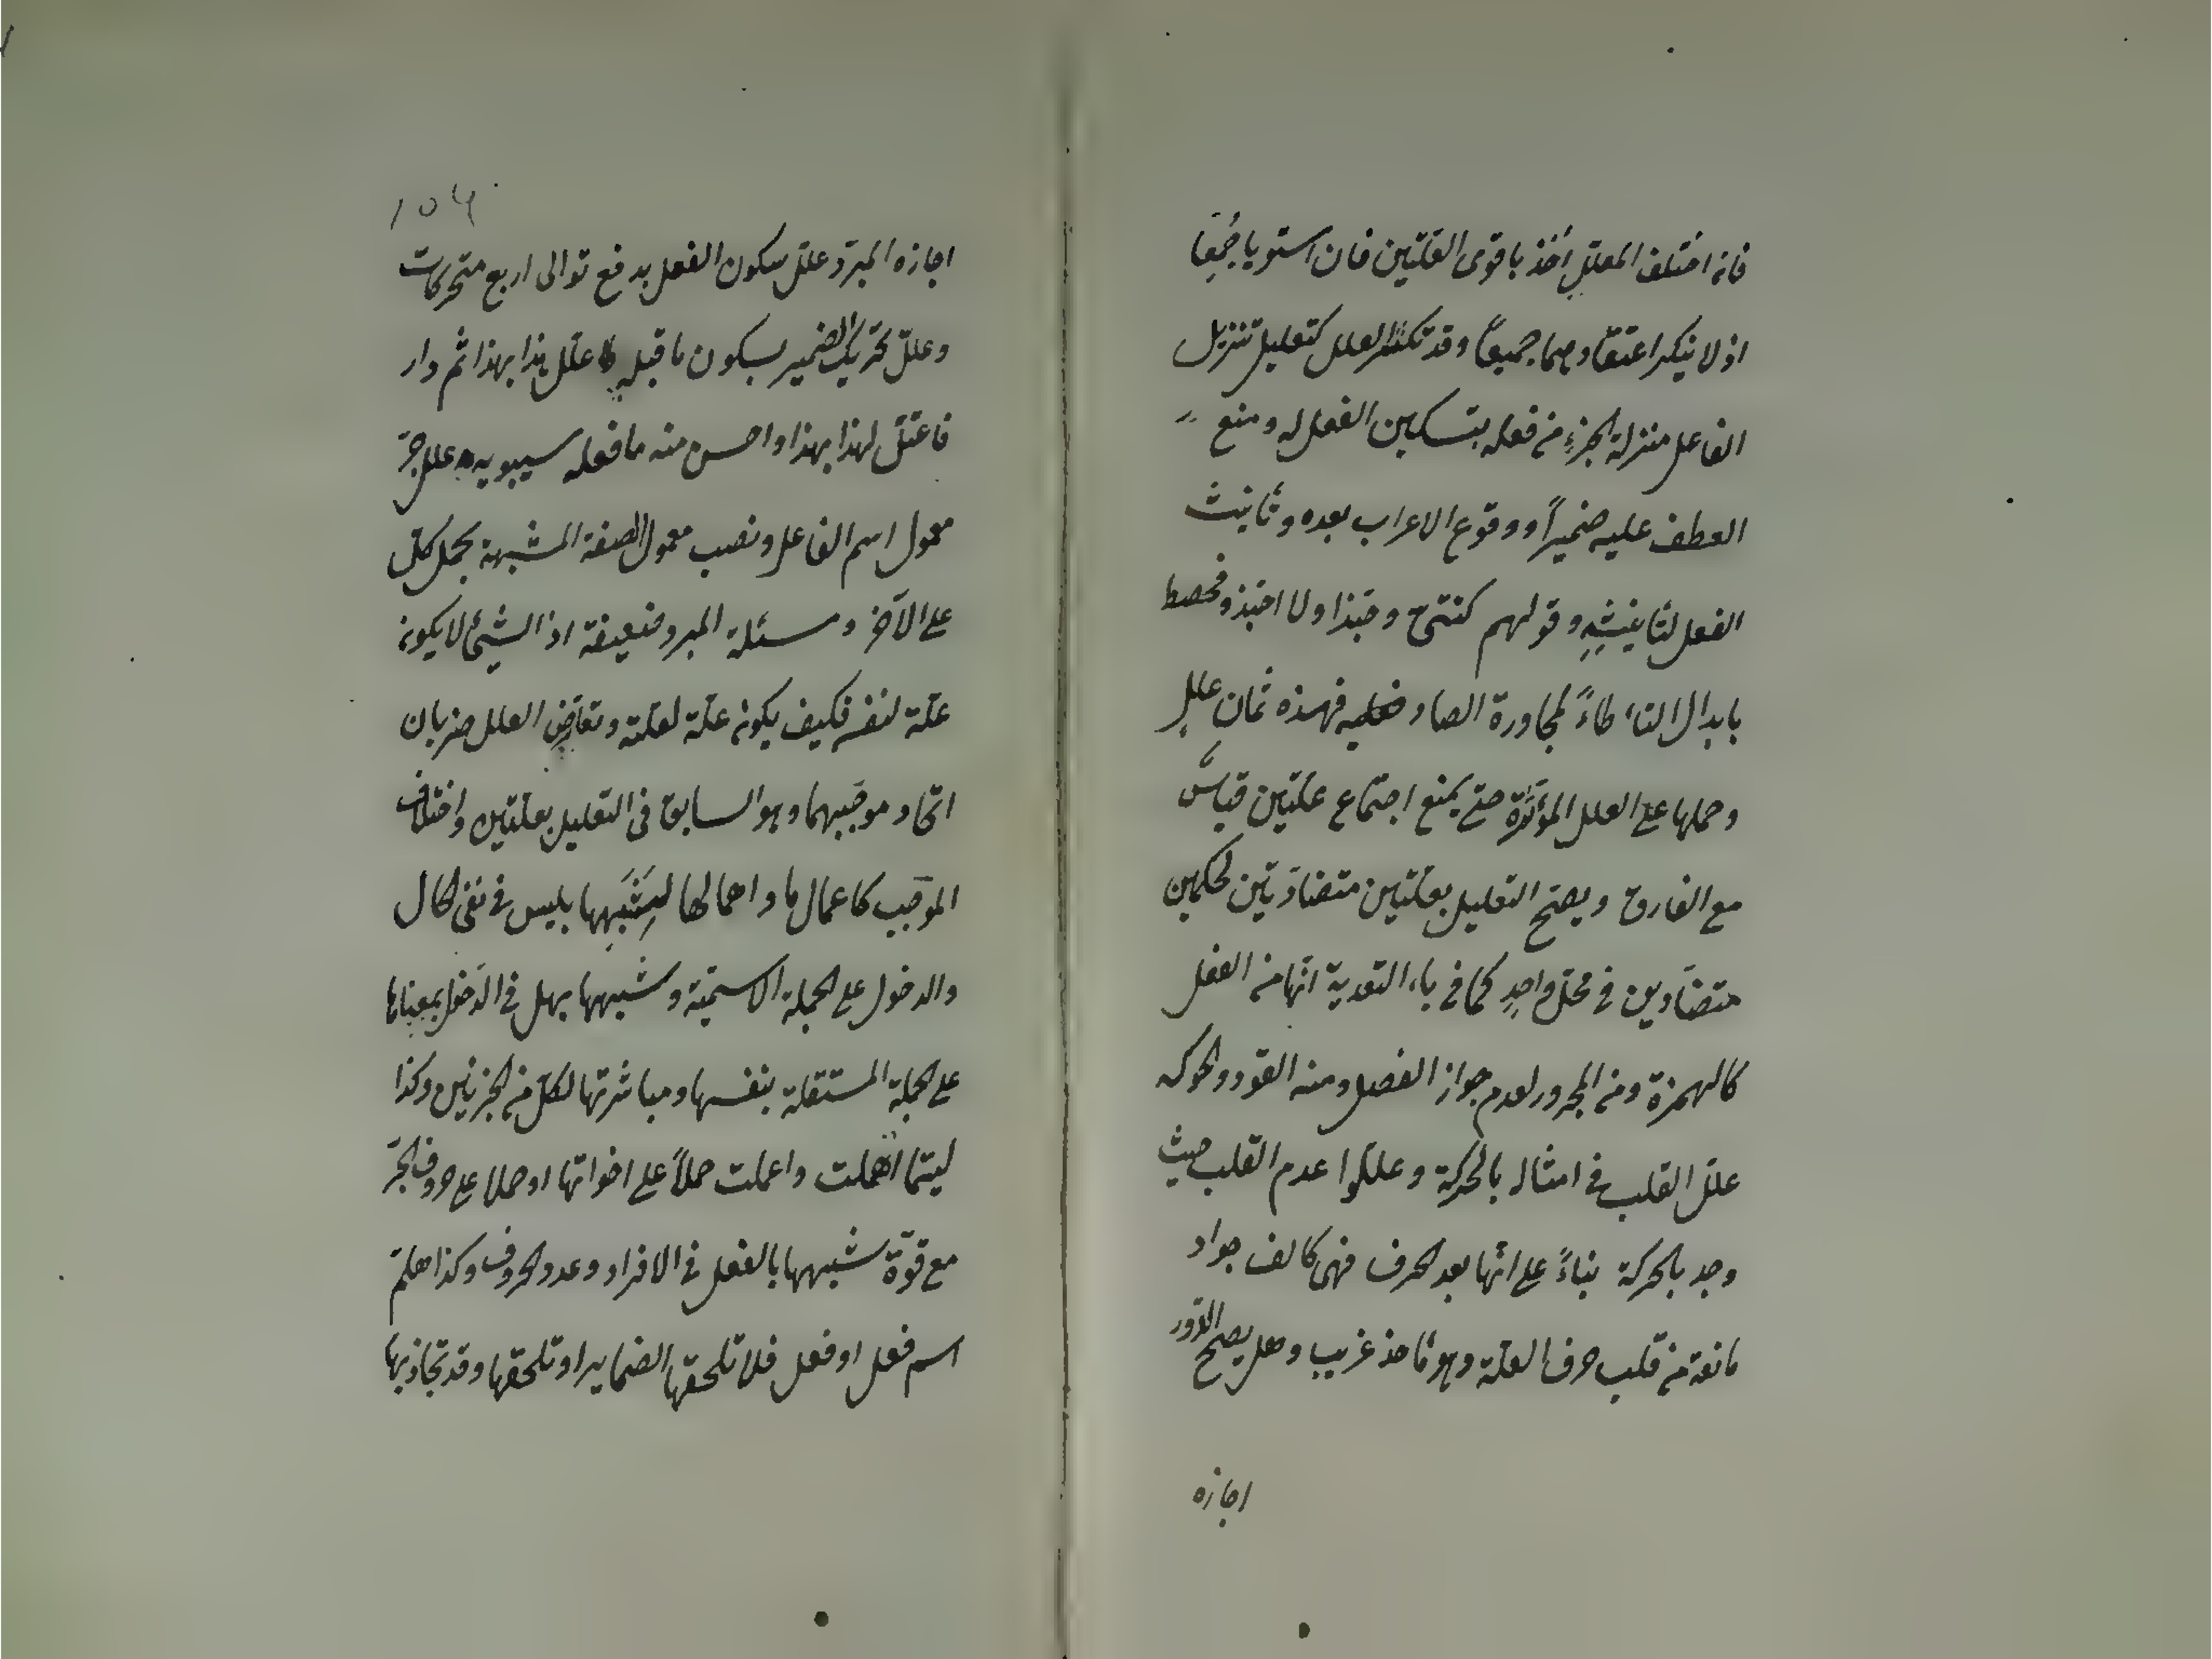 فانه اختلف المعتل اخذ باقوى العلتين فان استويا جُمِعا
اذ لا ينكر اعتقادهما جميعاً وقد تكثر العلل كتعليل تنزيل
الفاعل منزلة الجزءِ من فعله بتسكين الفعل له ومنع
العطف عليه ضميراً ووقوع الاعراب بعده وتأنيث
الفعل لتأنيثِهِ وقولهم كنتىّ وحبّذا ولا احبّذ وفحصط
بابدال التاء طاءً لمجاورة الصاد فهذه ثمان عللٍ
وحملها على العلل المؤثرة حتى يمنع اجتماع علتين قياسٌ
مع الفارق ويصحّ التعليل بعلتين متضادّتين لحكمين
متضادّين في محلّ واحدٍ كما في باء التعدية انّها من الفعل
كالهمزة ومن المجرور لعدم جواز الفصل ومنه القود والحوكه
علّل القلب في امثاله بالحركة وعللّوا عدم القلب حيث
وجد بالحركة بناءً على انّها بعد الحرف فهى كالف جواد
مانعة من قلب حرف العلّة وهو مأخذ غريب وهل يصحّ الدّور
اجازه
١٥٦
اجازه المبرّد علّل سكون الفعل بدفع توالى اربع متحركات
وعلّل تحريك الضمير بسكون ما قبله علّل هذا بهذا ثم دار
فاعتلّ لهذا بهذا واحسن منه ما فعله سيبويه علل جرّ
معمول اسم الفاعل ونصب معمول الصفة المشبهة بحمل كلّ
على الآخر ومسئلة المبرد ضعيفة اذ الشيئ لا يكون
علّة لنفسه فكيف يكون علّة لعلّته وتعارض العلل ضربان
اتحاد موجَبيهما وهو السابق فى التعليل بعلّتين واختلاف
الموجَب كاعمال ما واهمالها لِشَبَهِها بليس في نفى الحال
والدخول على الجملة الاسميّة وشبهها بهل في الدّخول بمعناها
على الجملة المستقلة بنفسها ومباشرتها لكلّ من الجزئين وكذا
ليتما اهملت واعملت حملاً على اخواتها او حملا على حروف الجرّ
مع قوّة شبهها بالفعل في الافراد وعدد الحروف وكذا هلمّ
اسم فعل او فعل فلا تلحقها الضماير او تلحقها وقد تجاذبها